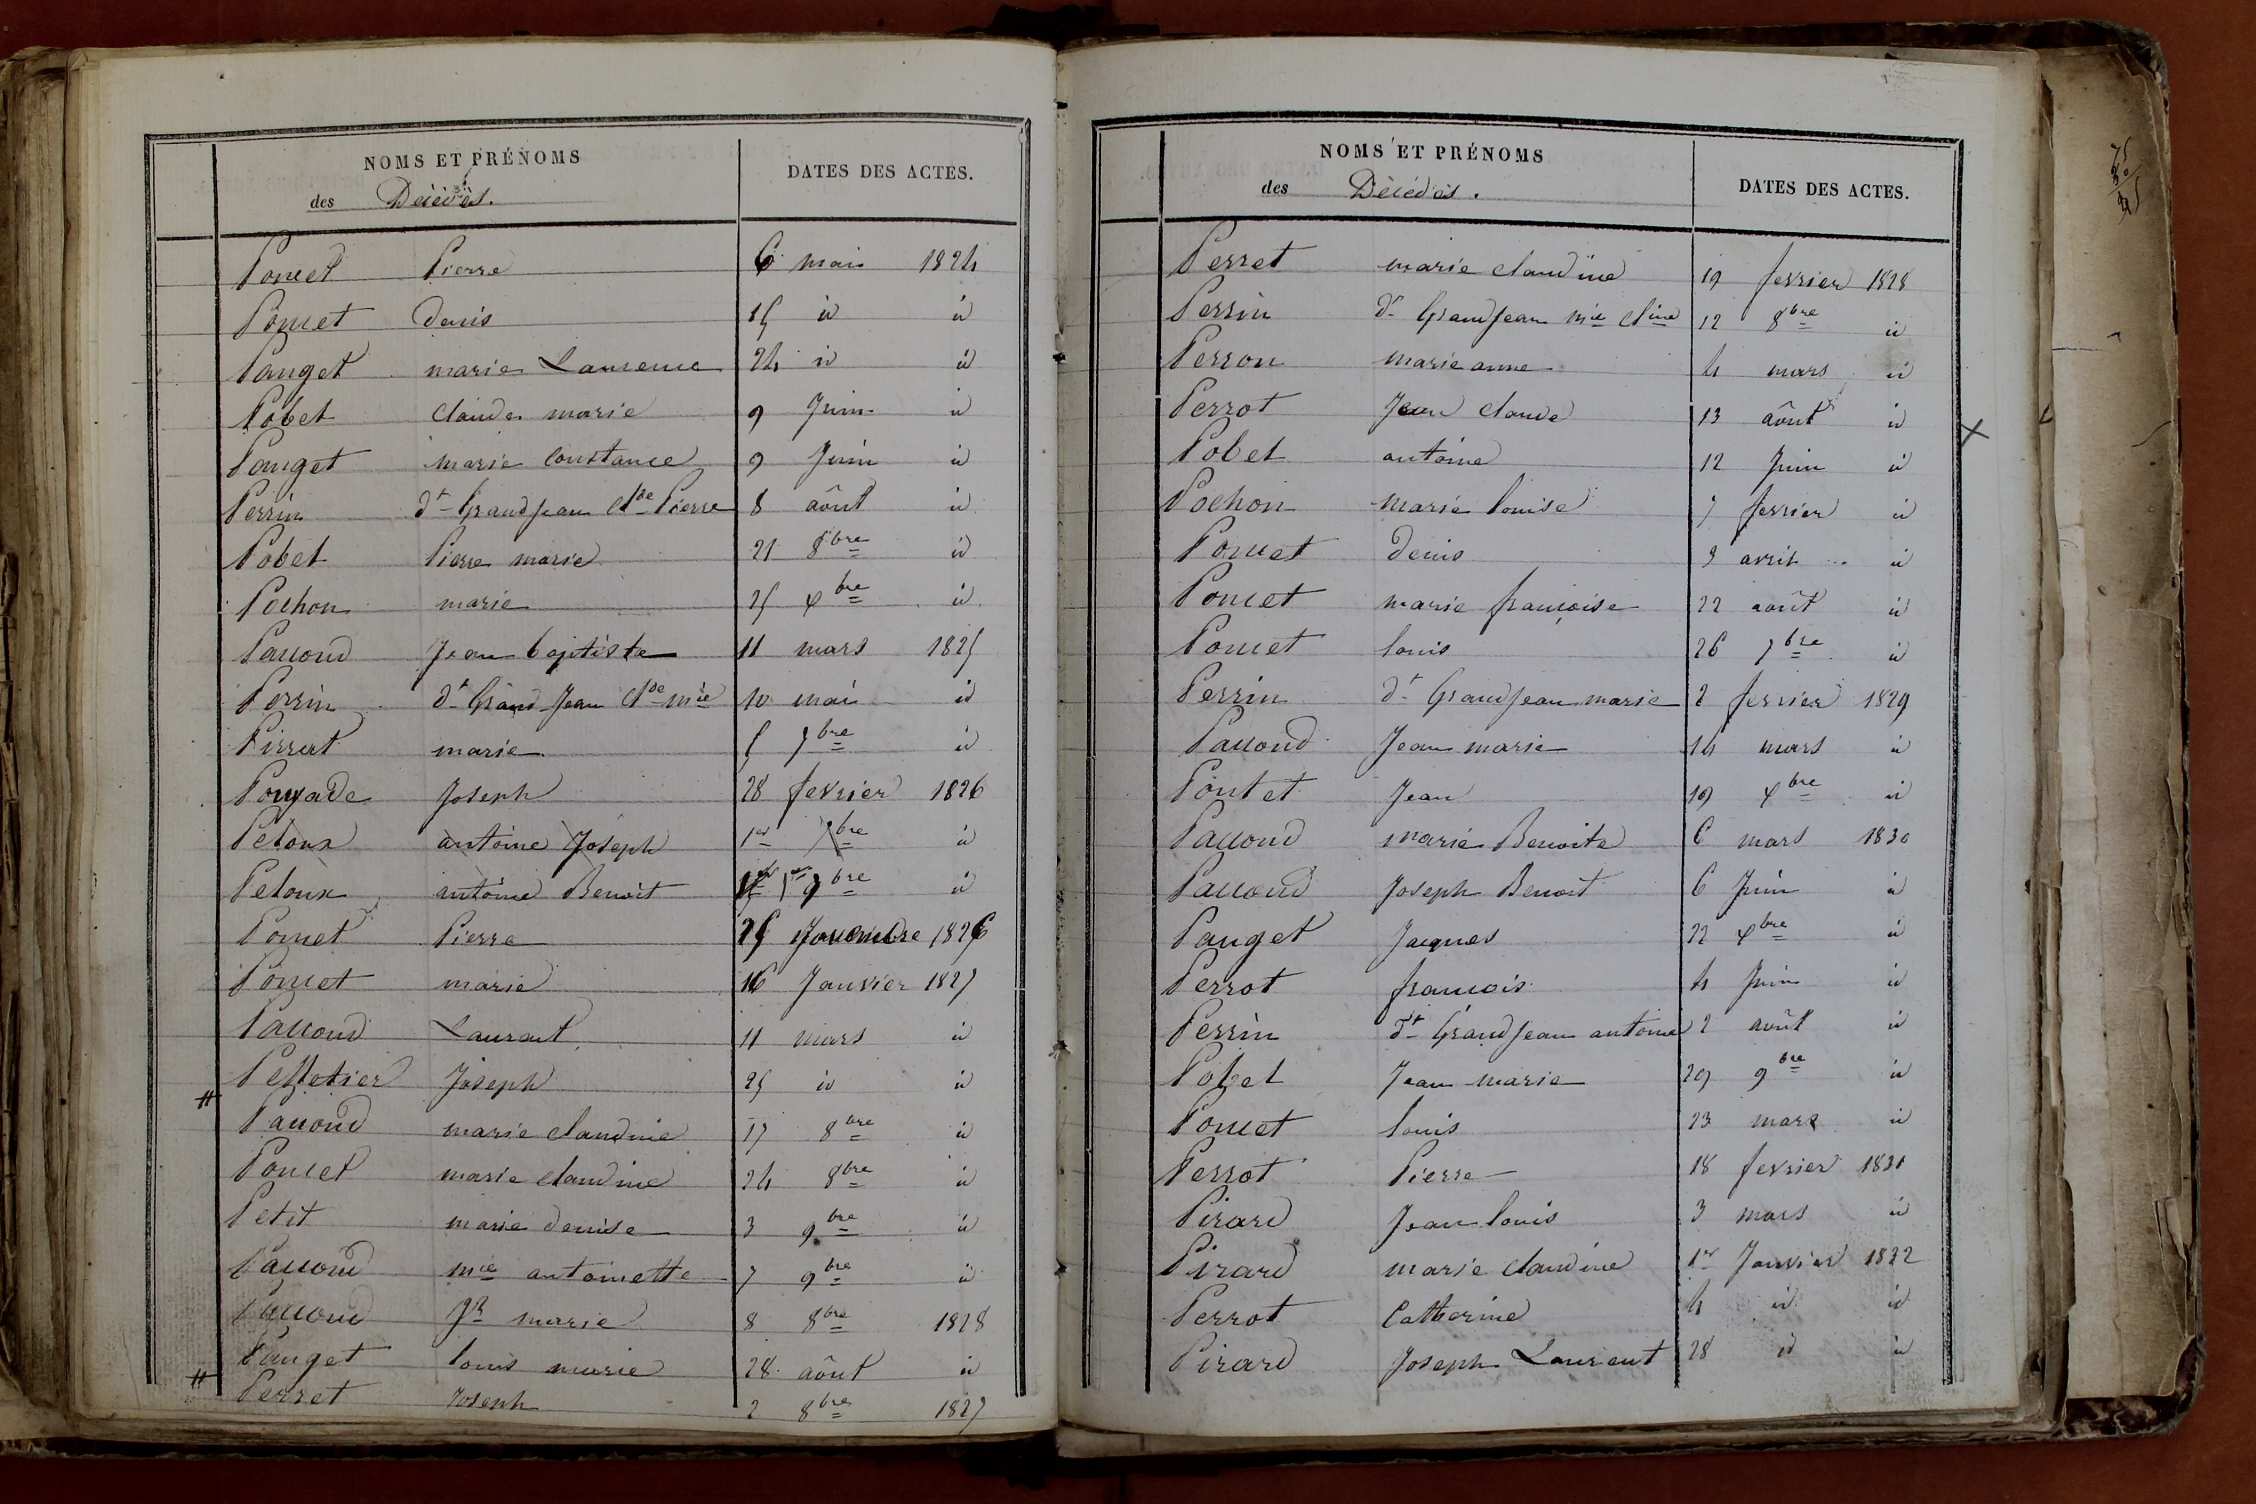 NOMS ET PRÉNOMS
des Décédés.
DATES DES ACTES.
Poncet Pierre 6 mai 1824
Poncet denis 15 id id
Panget marie Laurence 24 id id
Pobet Claude marie 9 Juin id
Panget marie Constance 9 Juin id
Perrin dt Grandjean Cde Pierre 8 août id
Pobet Pierre marie 21 8bre id
Pochon marie 25 xbre id
Paccoud Jean baptiste 11 mars 1825
Perrin dt Grand Jean Cde mie 10 mai id
Pirrat marie 5 7bre id
Pouyade Joseph 28 fevrier 1826
Peloux antoine Joseph 1er 7bre id
Peloux antoine Benoit 9bre id
Poncet Pierre 25 Novembre 1826
Poncet marie 16 Janvier 1827
Paccoud Laurent 11 mars id
Pelletier Joseph 25 id id
Paccoud marie claudine 17 8bre id
Poncet marie claudine 24 8bre id
Petit marie denise 3 9bre id
Paccoud mie antoinette 7 9bre id
Paccoud marie 8 8bre 1828
Panget louis marie 28 août id
Perret Joseph 2 8bre 1827
NOMS ET PRÉNOMS
des Décédés.
DATES DES ACTES.
Perret marie claudine 19 fevrier 1828
Perrin dt Grandjean mie Cline 12 8bre id
Perron marie anne 4 mars id
Perrot Jean claude 13 août id
Pobet antoine 12 Juin id
Pochon marie louise 7 fevrier id
Poncet denis 9 avril id
Poncet marie françoise 22 août id
Poncet louis 26 7bre id
Perrin dt Grandjean marie 2 fevrier 1829
Paccoud Jean marie 14 mars id
Pontet Jean 19 xbre id
Paccoud marie Benoite 6 mars 1830
Paccoud Joseph Benoit 6 Juin id
Panget Jacques 22 xbre id
Perrot francois 4 Juin id
Perrin dt Grandjean antoine 2 août id
Pobet Jean marie 29 9bre id
Poncet louis 23 mars id
Perrot Pierre 18 fevrier 1831
Pirard Jean louis 3 mars id
Pirard marie claudine 1er Janvier 1832
Perrot Catherine 4 id id
Pirard Joseph Laurent 28 id id